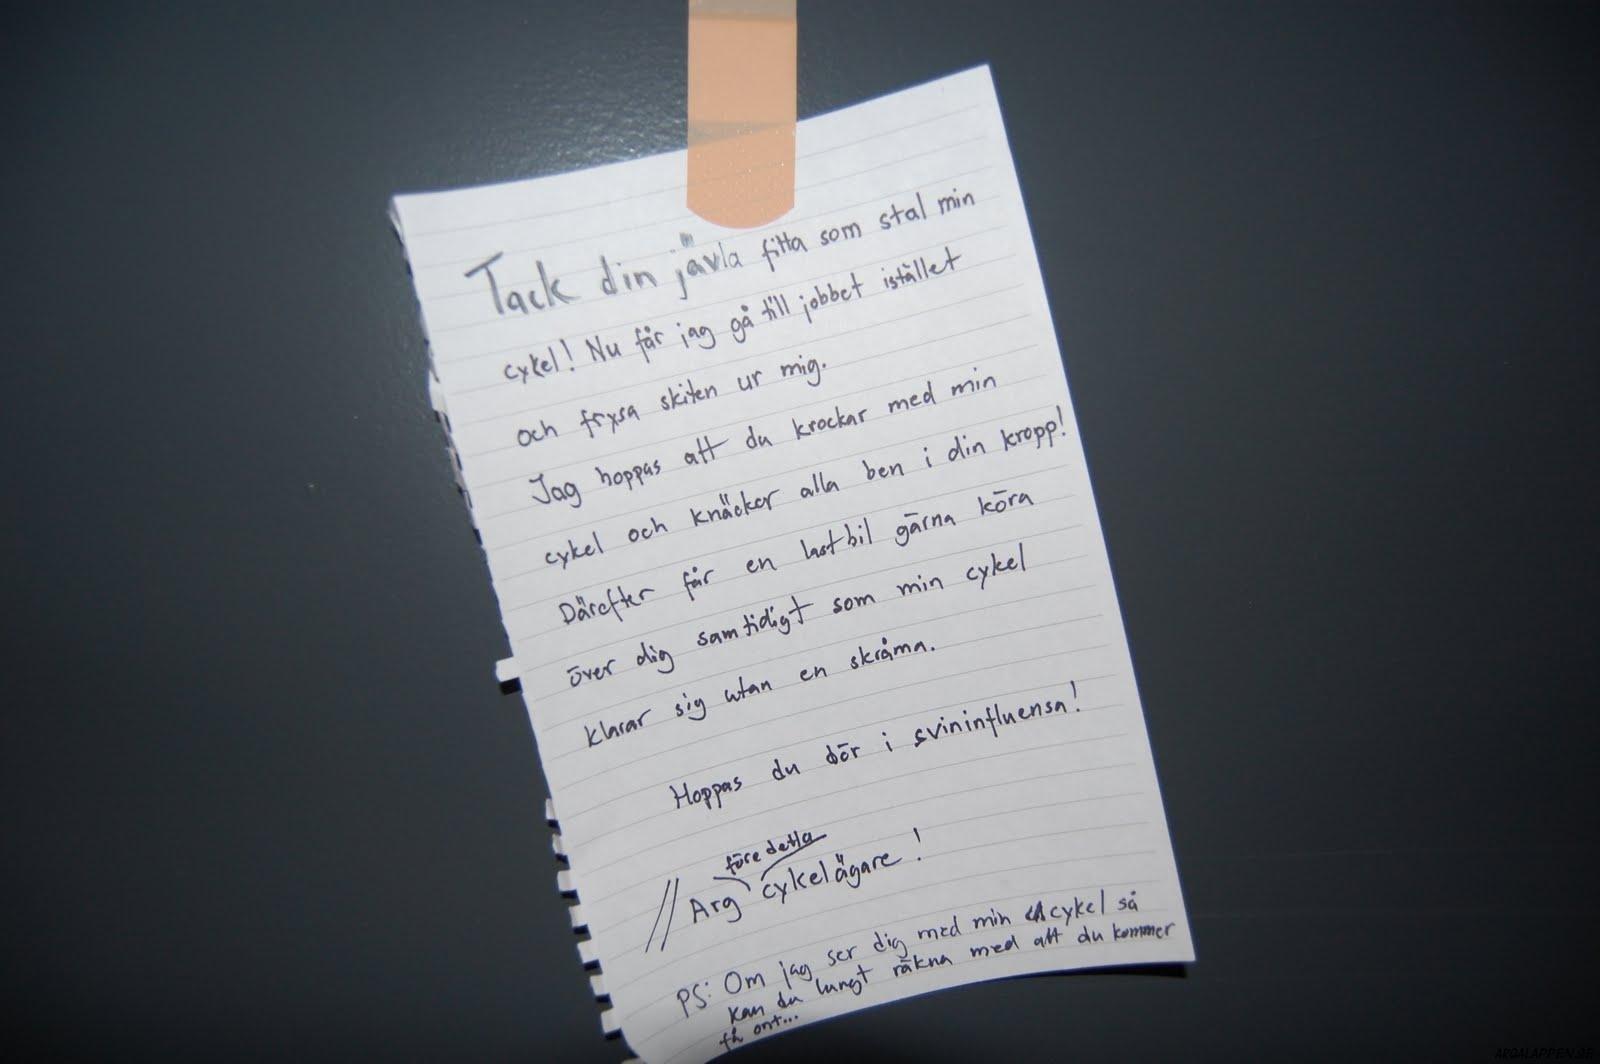 Tack din jävla fitta som stal min
cykel! Nu får jag gå till jobbet istället
och frysa skiten ur mig.
Jag hoppas att du krockar med min
cykel och knäcker alla ben i din kropp!
Därefter får en lastbil gärna köra
över dig samtidigt som min cykel
klarar sig utan en skråma.
Hoppas du dör i svininfluensa!
före detta
// Arg cykelägare!
PS: Om jag ser dig med min cykel så
kan du lungt räkna med att du kommer
få ont...
ARGALAPPEN.SE